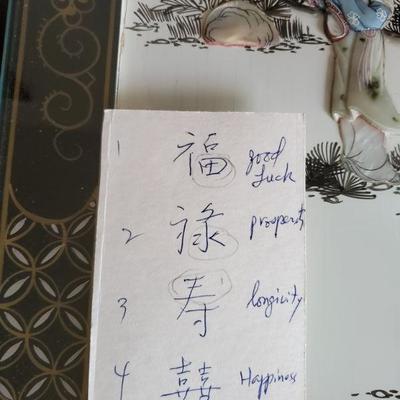 1 福 good
luck
2 祿 prosperity
3 寿 longicity
4 囍 Happiness